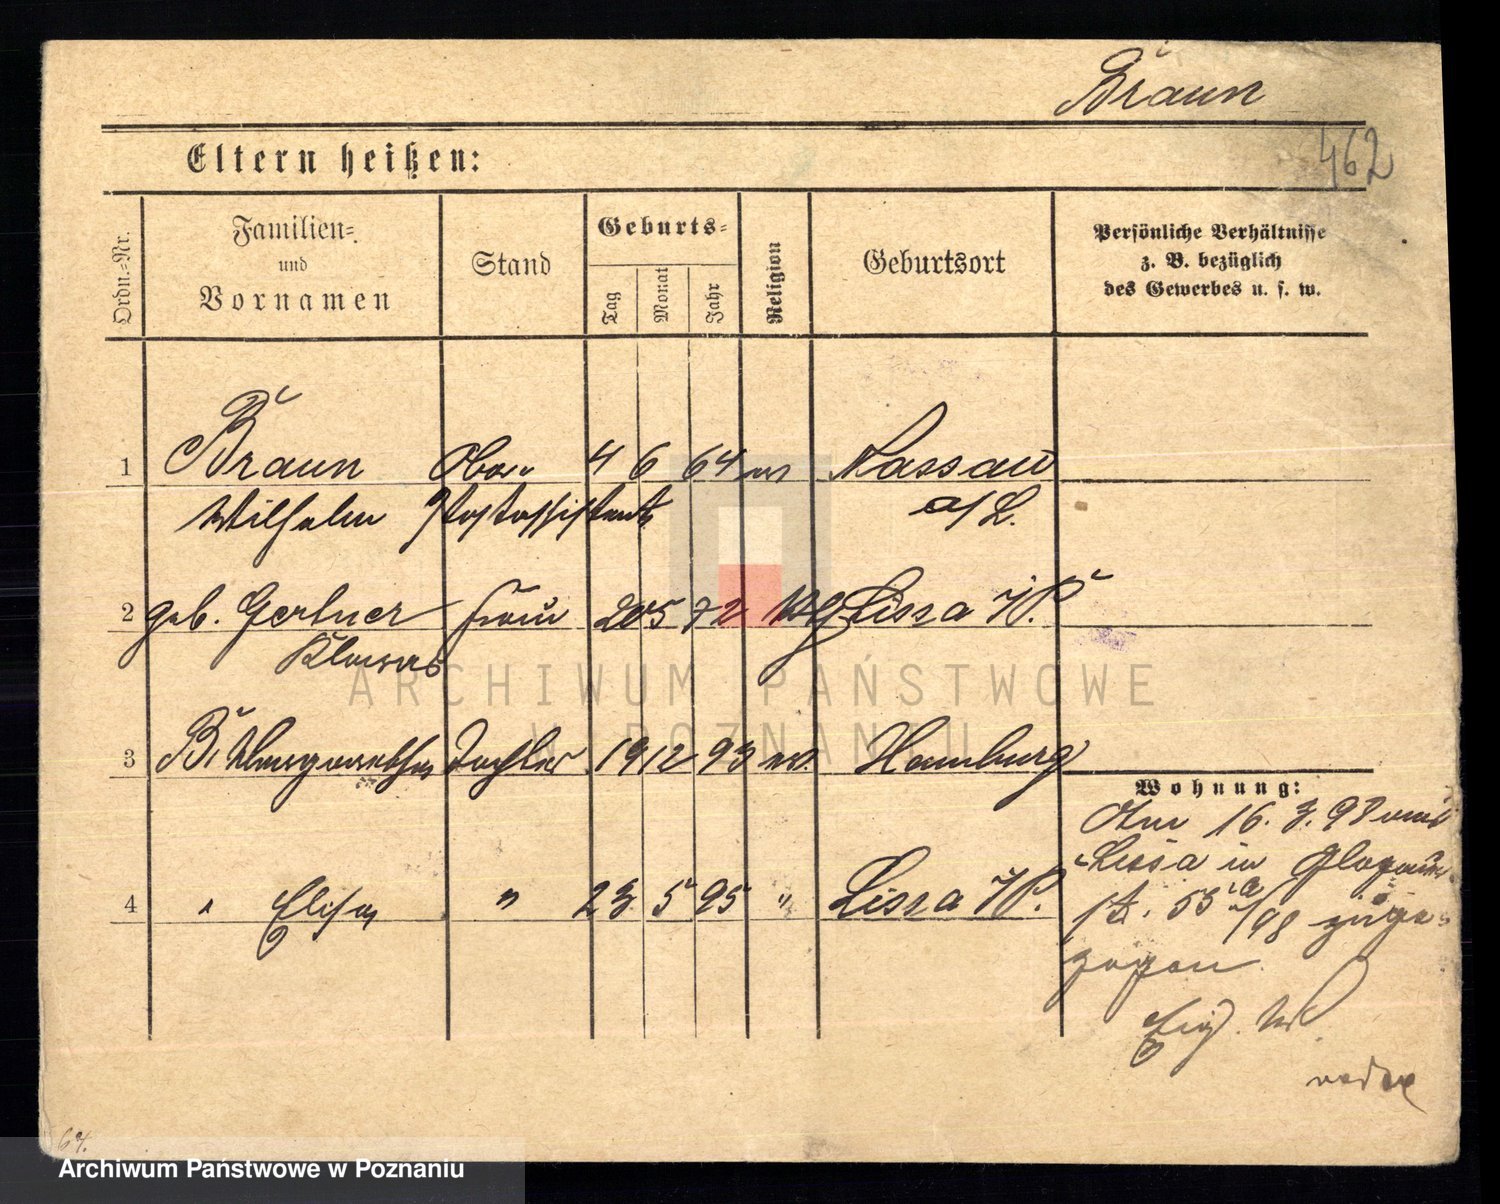 Braun
462
Eltern heißen:
Ordn.-Nr.
Familien- und Vornamen
Stand
Geburts-
Tag
Monat
Jahr
Religion
Geburtsort
Persönliche Verhältnisse
z. B. bezüglich
des Gewerbes u. s. w.
1 Braun Ober- 4 6 64 ev Nassau
Wilhelm Postassistent a/L.
2 geb. Gertner Frau 20 5 72 Lissa i/P.
3 B. Margarethe Tochter 19 12 93 ev. Hamburg
Wohnung:
Am 16. 3. 98 von
Lissa in Glogauer
4 " Elise " 23 5 95 " Lissa i/P.
98 zuge-
zogen
64.
ARCHIWUM PAŃSTWOWE
W POZNANIU
Archiwum Państwowe w Poznaniu